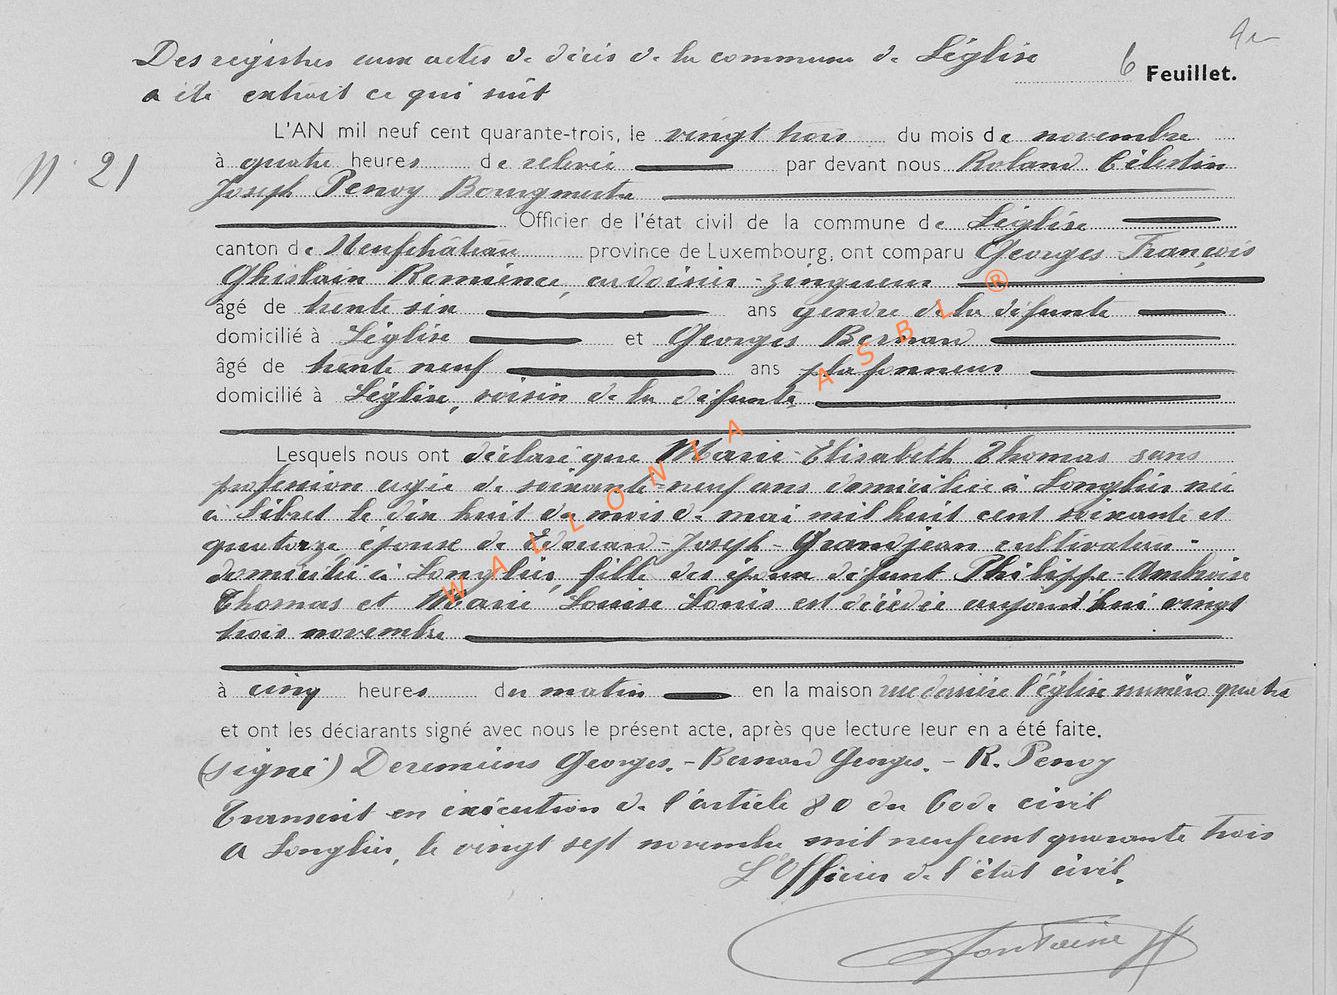 Des registres aux actes de décès de la commune de Léglise
6 Feuillet.
a été extrait ce qui suit
L'AN mil neuf cent quarante-trois, le vingt trois du mois de novembre
N° 21
à quatre heures de relevée par devant nous Roland Célestin
Joseph Penoy Bourgmestre
Officier de l'état civil de la commune de Léglise
canton de Neufchâteau province de Luxembourg, ont comparu Georges François
Ghislain ardoisier-zingueur
âgé de trente six ans gendre de la défunte
domicilié à Léglise et Georges Bernard
âgé de trente neuf ans plafonneur
domicilié à Léglise, voisin de la défunte
Lesquels nous ont déclaré que Marie Elisabeth Thomas sans
profession agée de soixante-neuf ans domiciliée à Longlier née
à Sibret le dix huit du mois de mai mil huit cent soixante et
quatorze, épouse de Edouard-Joseph-Grandjean cultivateur
domicilié à Longlier, fille des époux défunt Philippe-Ambroise
Thomas et Marie Louise Louis est décédée aujourd'hui vingt
trois novembre
à cinq heures du matin en la maison rue derrière l'église numéro quatre
et ont les déclarants signé avec nous le présent acte, après que lecture leur en a été faite.
(signé) Georges. - Bernard Georges. - R. Penoy
Transcrit en exécution de l'article 80 du Code civil
A Longlier, le vingt sept novembre mil neuf cent quarante trois
L'Officier de l'état civil.
Fontaine
WALLONIA ASBL ®